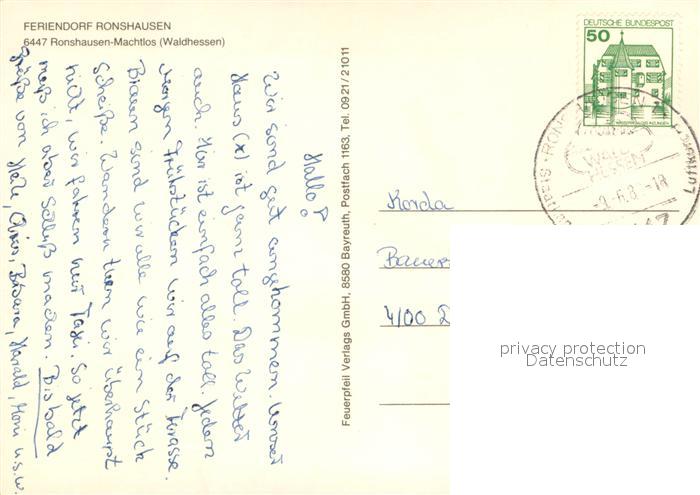 FERIENDORF RONSHAUSEN
6447 Ronshausen-Machtlos (Waldhessen)
Hallo!
Wir sind gut angekommen. Unser
Haus (x) ist ganz toll. Das Wetter
auch. Hier ist einfach alles toll. Jeden
Morgen Frühstücken wir auf der Terasse.
Braun sind wir alle wie ein Stück
Scheiße. Wandern tuen wir überhaupt
nicht, wir fahren nur Taxi. So jetzt
muß ich aber Schluß machen. Bis bald
Grüße von Harald, Moni u.s.w.
Feuerpfeil Verlags GmbH, 8580 Bayreuth, Postfach 1163, Tel. 0921/21011
DEUTSCHE BUNDESPOST
50
WALD
HESSEN
Luftkurort
Korda
Bauer
4100 D
privacy protection
Datenschutz